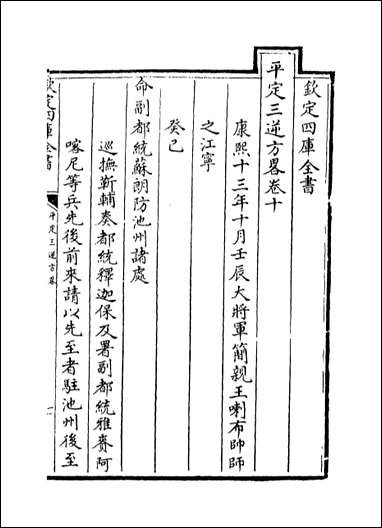 欽定四庫全書
平定三逆方畧卷十
康熙十三年十月壬辰大將軍簡親王喇布帥師
之江寧
癸巳
命副都統蘇朗防池州諸處
巡撫靳輔奏都統釋迦保及署副都統雅賚阿
喀尼等兵先後前來請以先至者駐池州後至
欽定四庫全書
平定三逆方畧
一